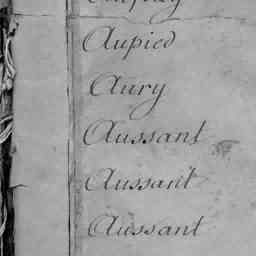 Aupied
Aury
Aussant
Aussant
Aussant